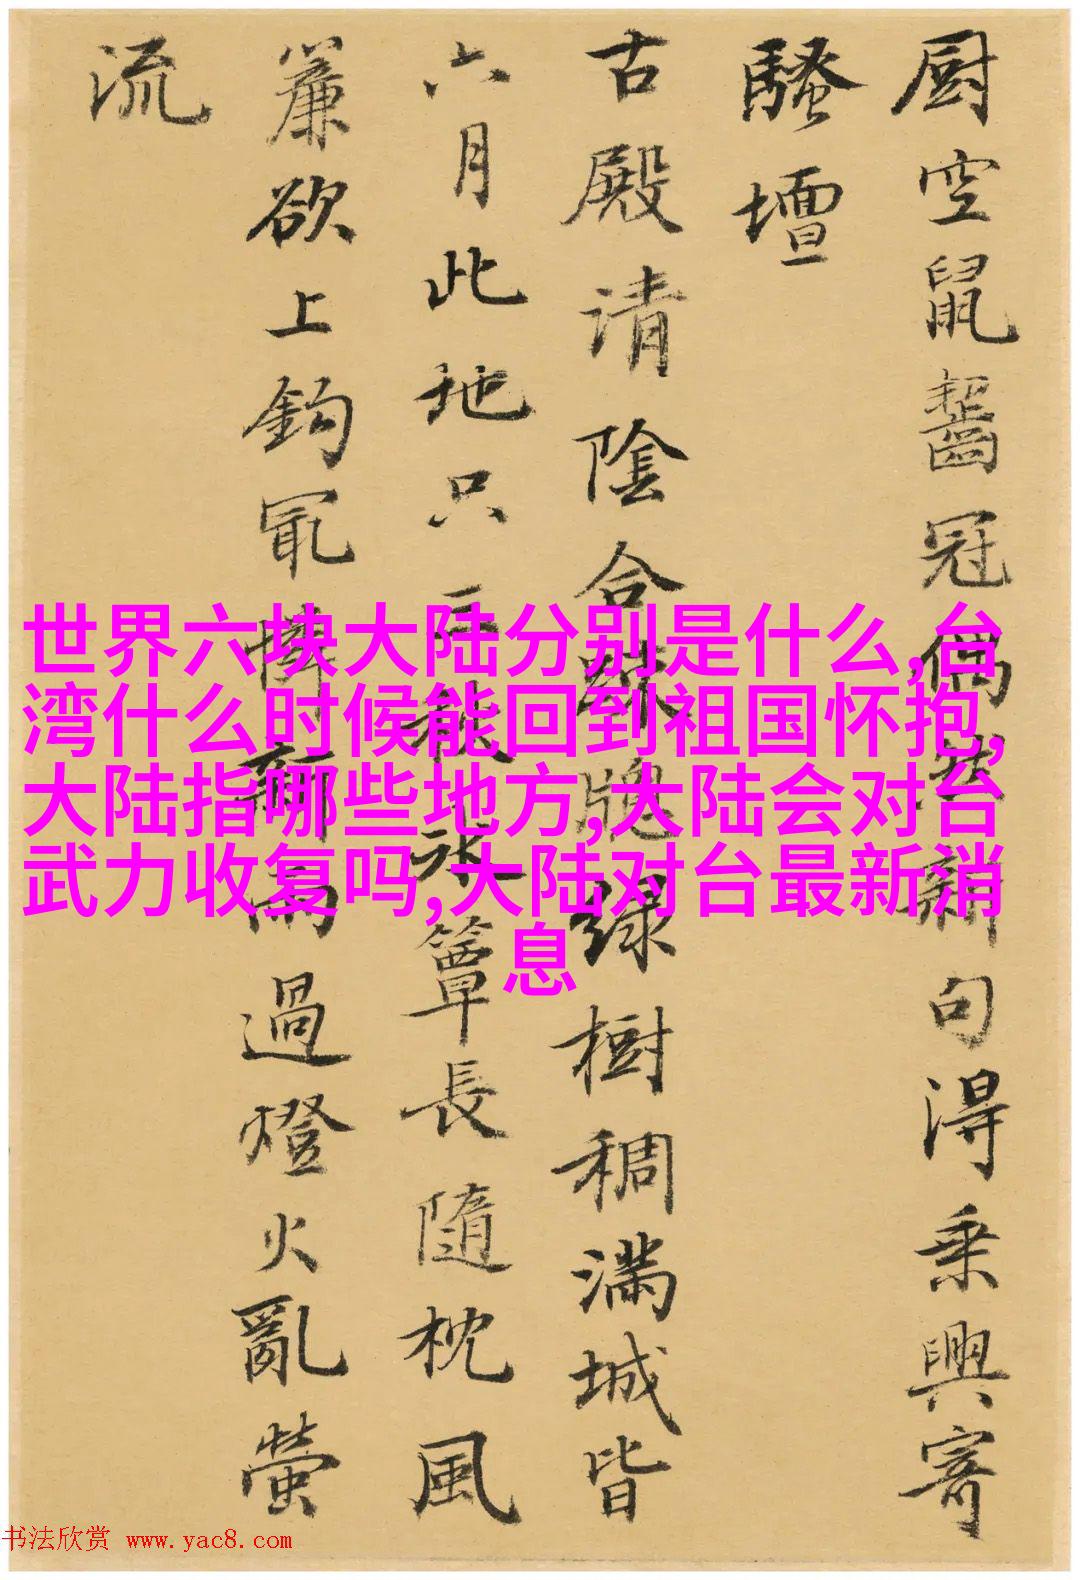 厨空鼠齧冠偶然新句得乘興寄
騷壇
古殿清陰合疎牕緑樹稠滿城皆
六月此地只三秋水簟長隨枕風
簾欲上鈎冣憐新雨過燈火亂螢
流
世界六块大陆分别是什么,台
湾什么时候能回到祖国怀抱,
大陆指哪些地方,大陆会对台
武力收复吗,大陆对台最新消
息
书法欣赏 www.yac8.com